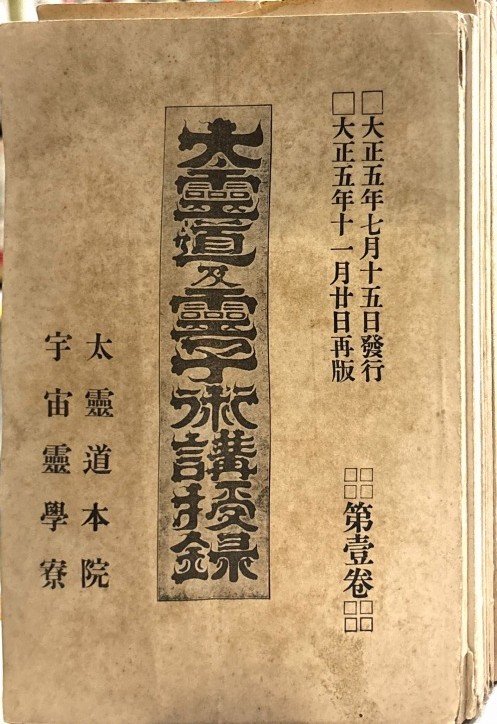 □大正五年七月十五日發行
□大正五年十一月廿日再版
第壹卷
太靈道及靈子術講授録
太靈道本院
宇宙靈學寮